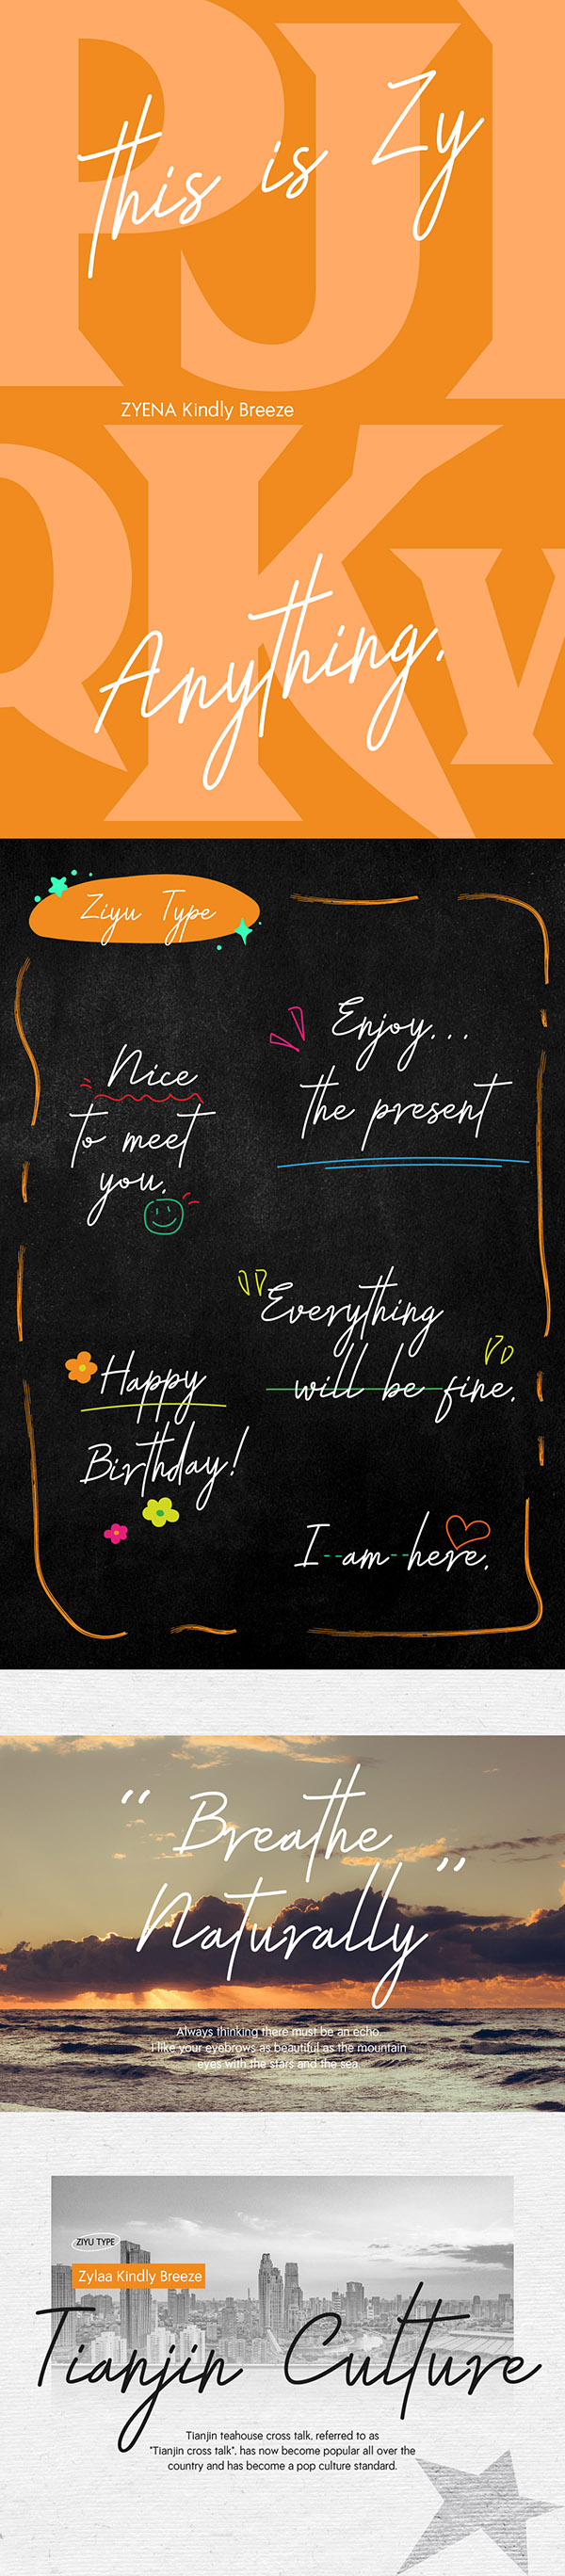 This is Zy
ZYENA Kindly Breeze
Anything.
Ziyu Type
Enjoy...
the present
Nice
to meet
you.
Everything
will be fine.
Happy
Birthday!
I am here.
“Breathe
Naturally”
Always thinking there must be an echo.
I like your eyebrows as beautiful as the mountain
eyes with the stars and the sea.
ZIYU TYPE
Zylaa Kindly Breeze
Tianjin Culture
Tianjin teahouse cross talk, referred to as
"Tianjin cross talk", has now become popular all over the
country and has become a pop culture standard.